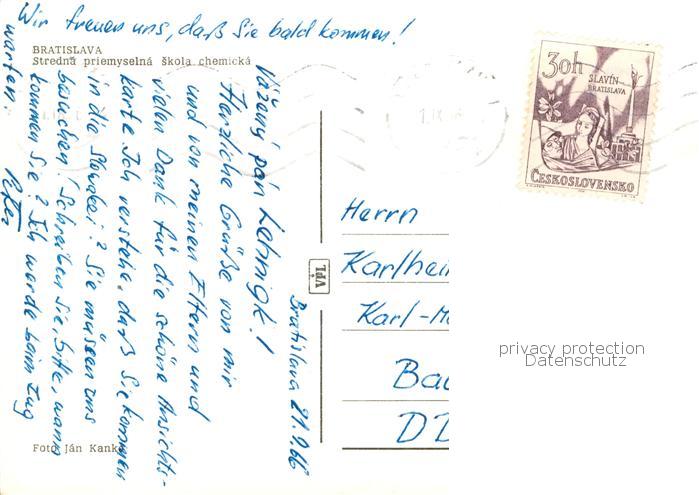 Wir freuen uns, daß Sie bald kommen!
BRATISLAVA
Stredná priemyselná škola chemická
Bratislava 21.9.66
Vážený pán Lehnigk!
Herzliche Grüße von mir
und von meinen Eltern und
vielen Dank für die schöne Ansichts-
karte. Ich verstehe, daß Sie kommen
in die Slowakei? Sie müssen uns
besuchen! Schreiben Sie, bitte, wann
kommen Sie? Ich werde beim Zug
warten.
Peter
Foto Ján Kanka
VPL
3oh
SLAVÍN
BRATISLAVA
ČESKOSLOVENSKO
Herrn
Karlhei
Karl-M
Bau
DD
privacy protection
Datenschutz